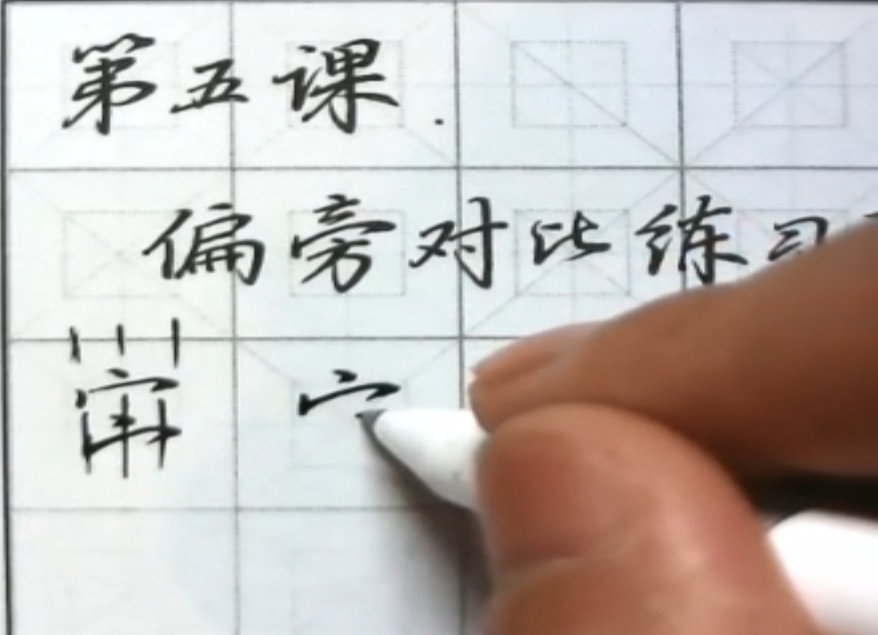 第五课.
偏旁对比练习
审 宀